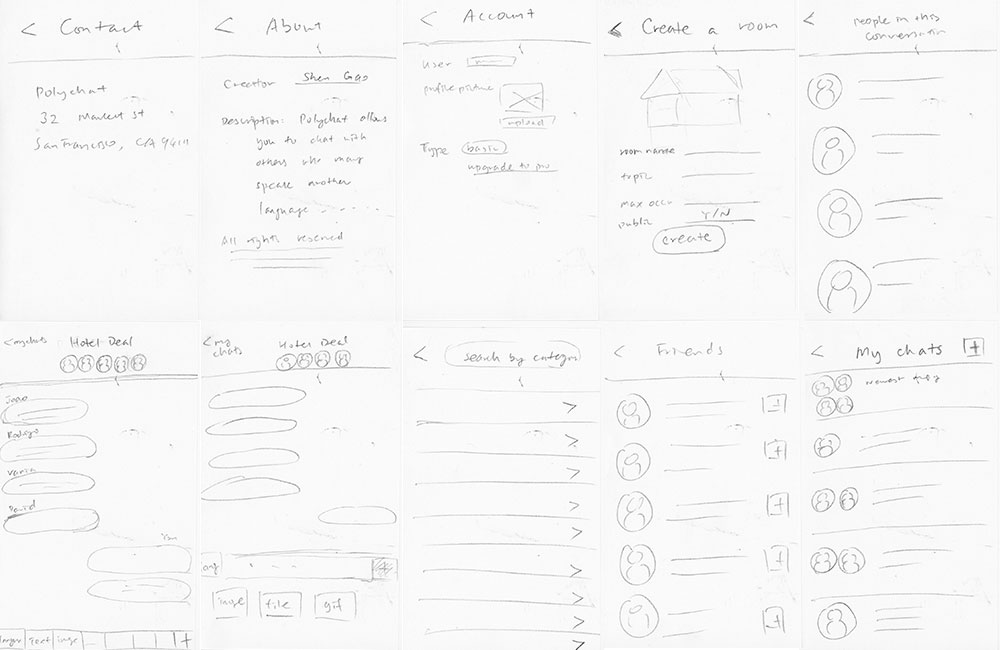 < Contact
Polychat
32 Market St
San Francisco, CA 94111
< About
Creator Shen Gao
Description: Polychat allows
you to chat with
others who may
speak another
language .....
All rights reserved
< Account
User
profile picture
upload
Type basic
upgrade to pro
< Create a room
room name
topic
max occu
public Y/N
create
< People in this
conversation
< my chats Hotel Deal
Joao
Rodrigo
Varun
David
Text
+
< my
chats
Hotel Deal
+
image file gif
< search by category
< Friends
+
+
+
+
+
< My chats +